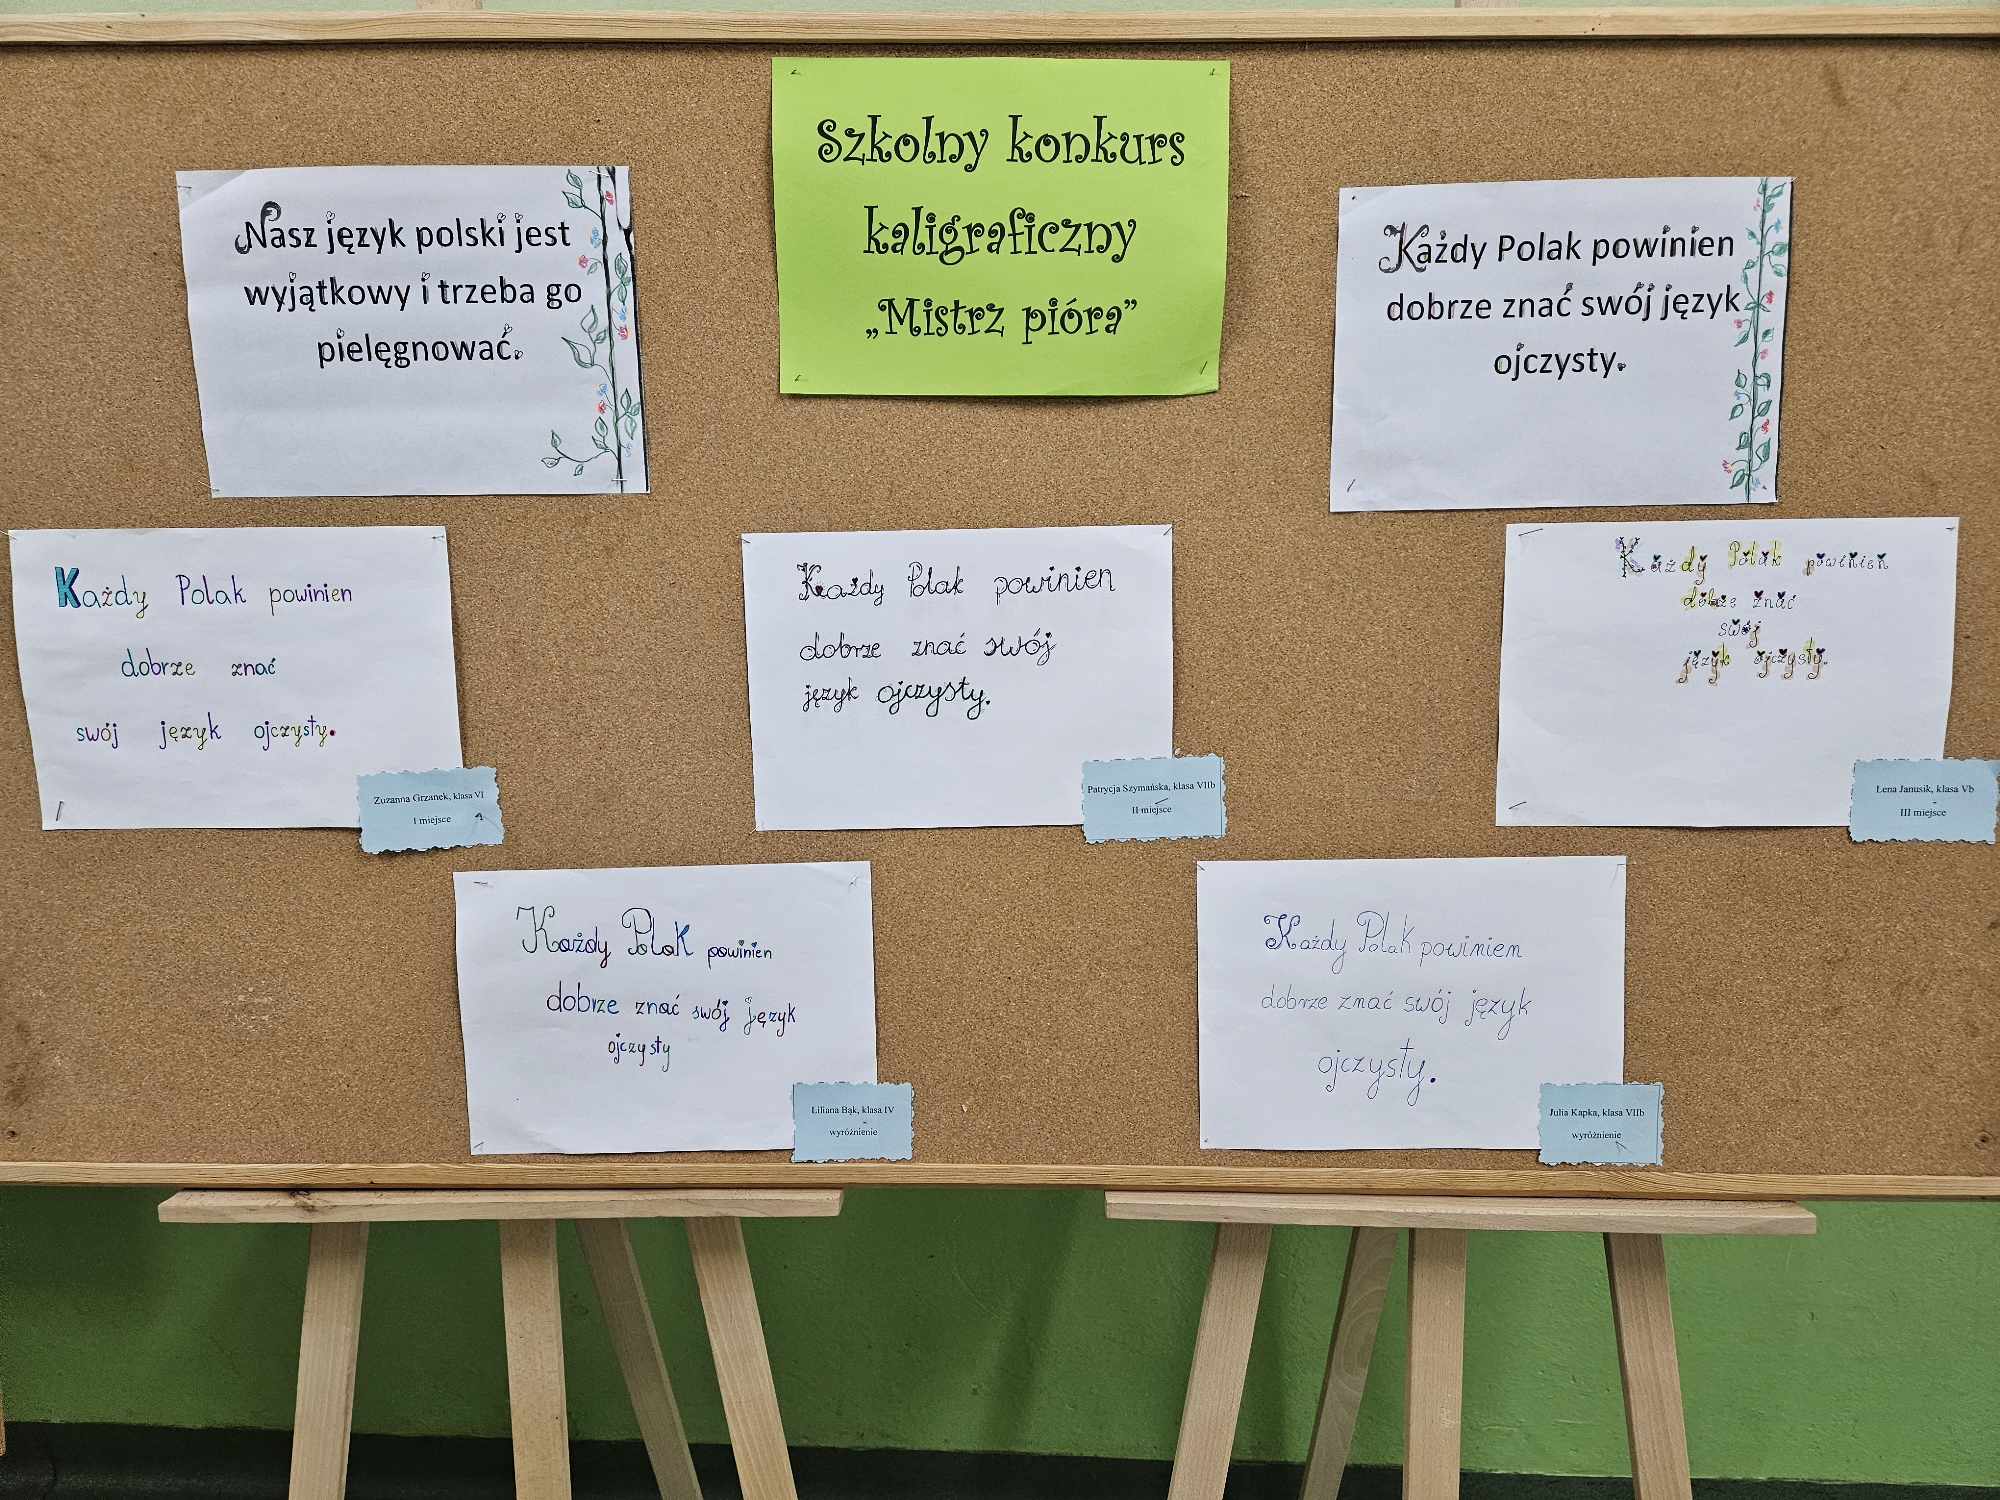 Szkolny konkurs
kaligraficzny
„Mistrz pióra”
Nasz język polski jest
wyjątkowy i trzeba go
pielęgnować.
Każdy Polak powinien
dobrze znać swój język
ojczysty.
Każdy Polak powinien
dobrze znać
swój język ojczysty.
Zuzanna Grzanek, klasa VI
I miejsce
Każdy Polak powinien
dobrze znać swój
język ojczysty.
Patrycja Szymańska, klasa VIIb
II miejsce
Każdy Polak powinien
dobrze znać
swój
język ojczysty.
Lena Janusik, klasa Vb
III miejsce
Każdy Polak powinien
dobrze znać swój język
ojczysty
Liliana Bąk, klasa IV
wyróżnienie
Każdy Polak powinien
dobrze znać swój język
ojczysty.
Julia Kapka, klasa VIIb
wyróżnienie